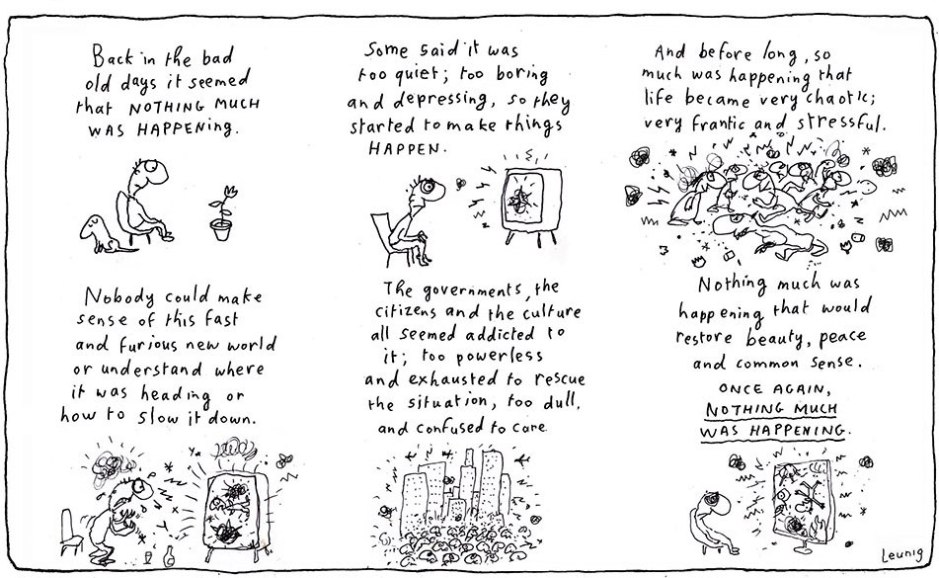 Back in the bad
old days it seemed
that NOTHING MUCH
WAS HAPPENING.
Some said it was
too quiet; too boring
and depressing, so they
started to make things
HAPPEN.
And before long, so
much was happening that
life became very chaotic;
very frantic and stressful.
Nobody could make
sense of this fast
and furious new world
or understand where
it was heading or
how to slow it down.
The governments, the
citizens and the culture
all seemed addicted to
it; too powerless
and exhausted to rescue
the situation, too dull,
and confused to care
Nothing much was
happening that would
restore beauty, peace
and common sense.
ONCE AGAIN,
NOTHING MUCH
WAS HAPPENING.
Leunig